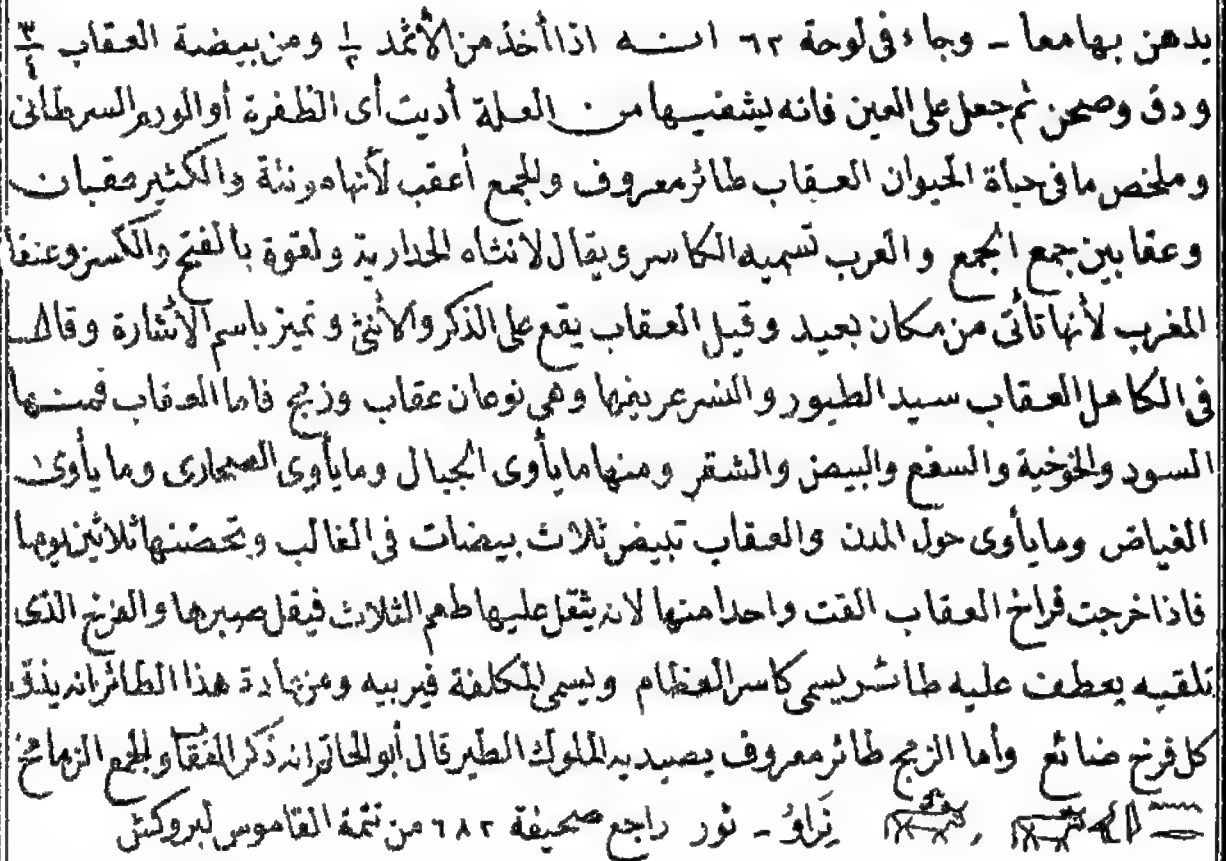 يدهن بها معا - وجاء فى لوحة ٦٢ انـه اذا أخذ من الأثمد ١/٢ ومن بيضة العقاب ٣/٤
ودق وصحن ثم جعل على العين فانه يشفيها من العلة أديت أى الظفرة أو الورم السرطانى
وملخص ما فى حياة الحيوان العقاب طائر معروف والجمع أعقب لأنها مونثة والكثير عقبان
وعقابين جمع الجمع والعرب تسميه الكاسر ويقال لانثاه الخدارية ولقوة بالفتح والكسر وعنقا
المغرب لأنها تأتى من مكان بعيد وقيل العقاب يقع على الذكر والأنثى وتميز باسم الأشارة وقال
فى الكامل العقاب سيد الطيور والنسر عريفها وهى نوعان عقاب وزمج فاما العقاب فمنها
السود والخوخية والسفع والبيض والشقر ومنها ما يأوى الجبال وما يأوى الصحارى وما يأوى
الغياض وما يأوى حول المدن والعقاب تبيض ثلاث بيضات فى الغالب وتحضنها ثلاثين يوما
فاذا خرجت فراخ العقاب القت واحدا منها لانه يثقل عليها طعم الثلاث فيقل صبرها والفرخ الذى
تلقيه يعطف عليه طائر يسمى كاسر العظام ويسمى المكلفة فيربيه ومن عادة هذا الطائر انه يزق
كل فرخ ضائع وأما الزمج طائر معروف يصيد به الملوك الطير قال أبو الحاتم انه ذكر العقاب والجمع الزمامج
نَراوُ - ثور راجع صحيفة ٦٨٢ من تتمة القاموس لبروكش